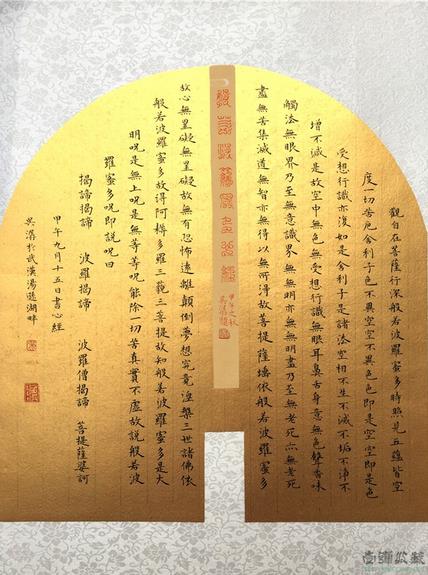 觀自在菩薩行深般若波羅蜜多時照見五蘊皆空
度一切苦厄舍利子色不異空空不異色色即是空空即是色
受想行識亦復如是舍利子是諸法空相不生不滅不垢不淨不
增不減是故空中無色無受想行識無眼耳鼻舌身意無色聲香味
觸法無眼界乃至無意識界無無明亦無無明盡乃至無老死亦無老死
盡無苦集滅道無智亦無得以無所得故菩提薩埵依般若波羅蜜多
般若波羅蜜多心經
甲午之秋
故心無罣礙無罣礙故無有恐怖遠離顛倒夢想究竟涅槃三世諸佛依
般若波羅蜜多故得阿耨多羅三藐三菩提故知般若波羅蜜多是大
明呪是無上呪是無等等呪能除一切苦真實不虛故說般若波
羅蜜多呪即說呪曰
揭諦揭諦 波羅揭諦 波羅僧揭諦 菩提薩婆訶
甲午九月十五日書心經
吳於武漢湯遜湖畔